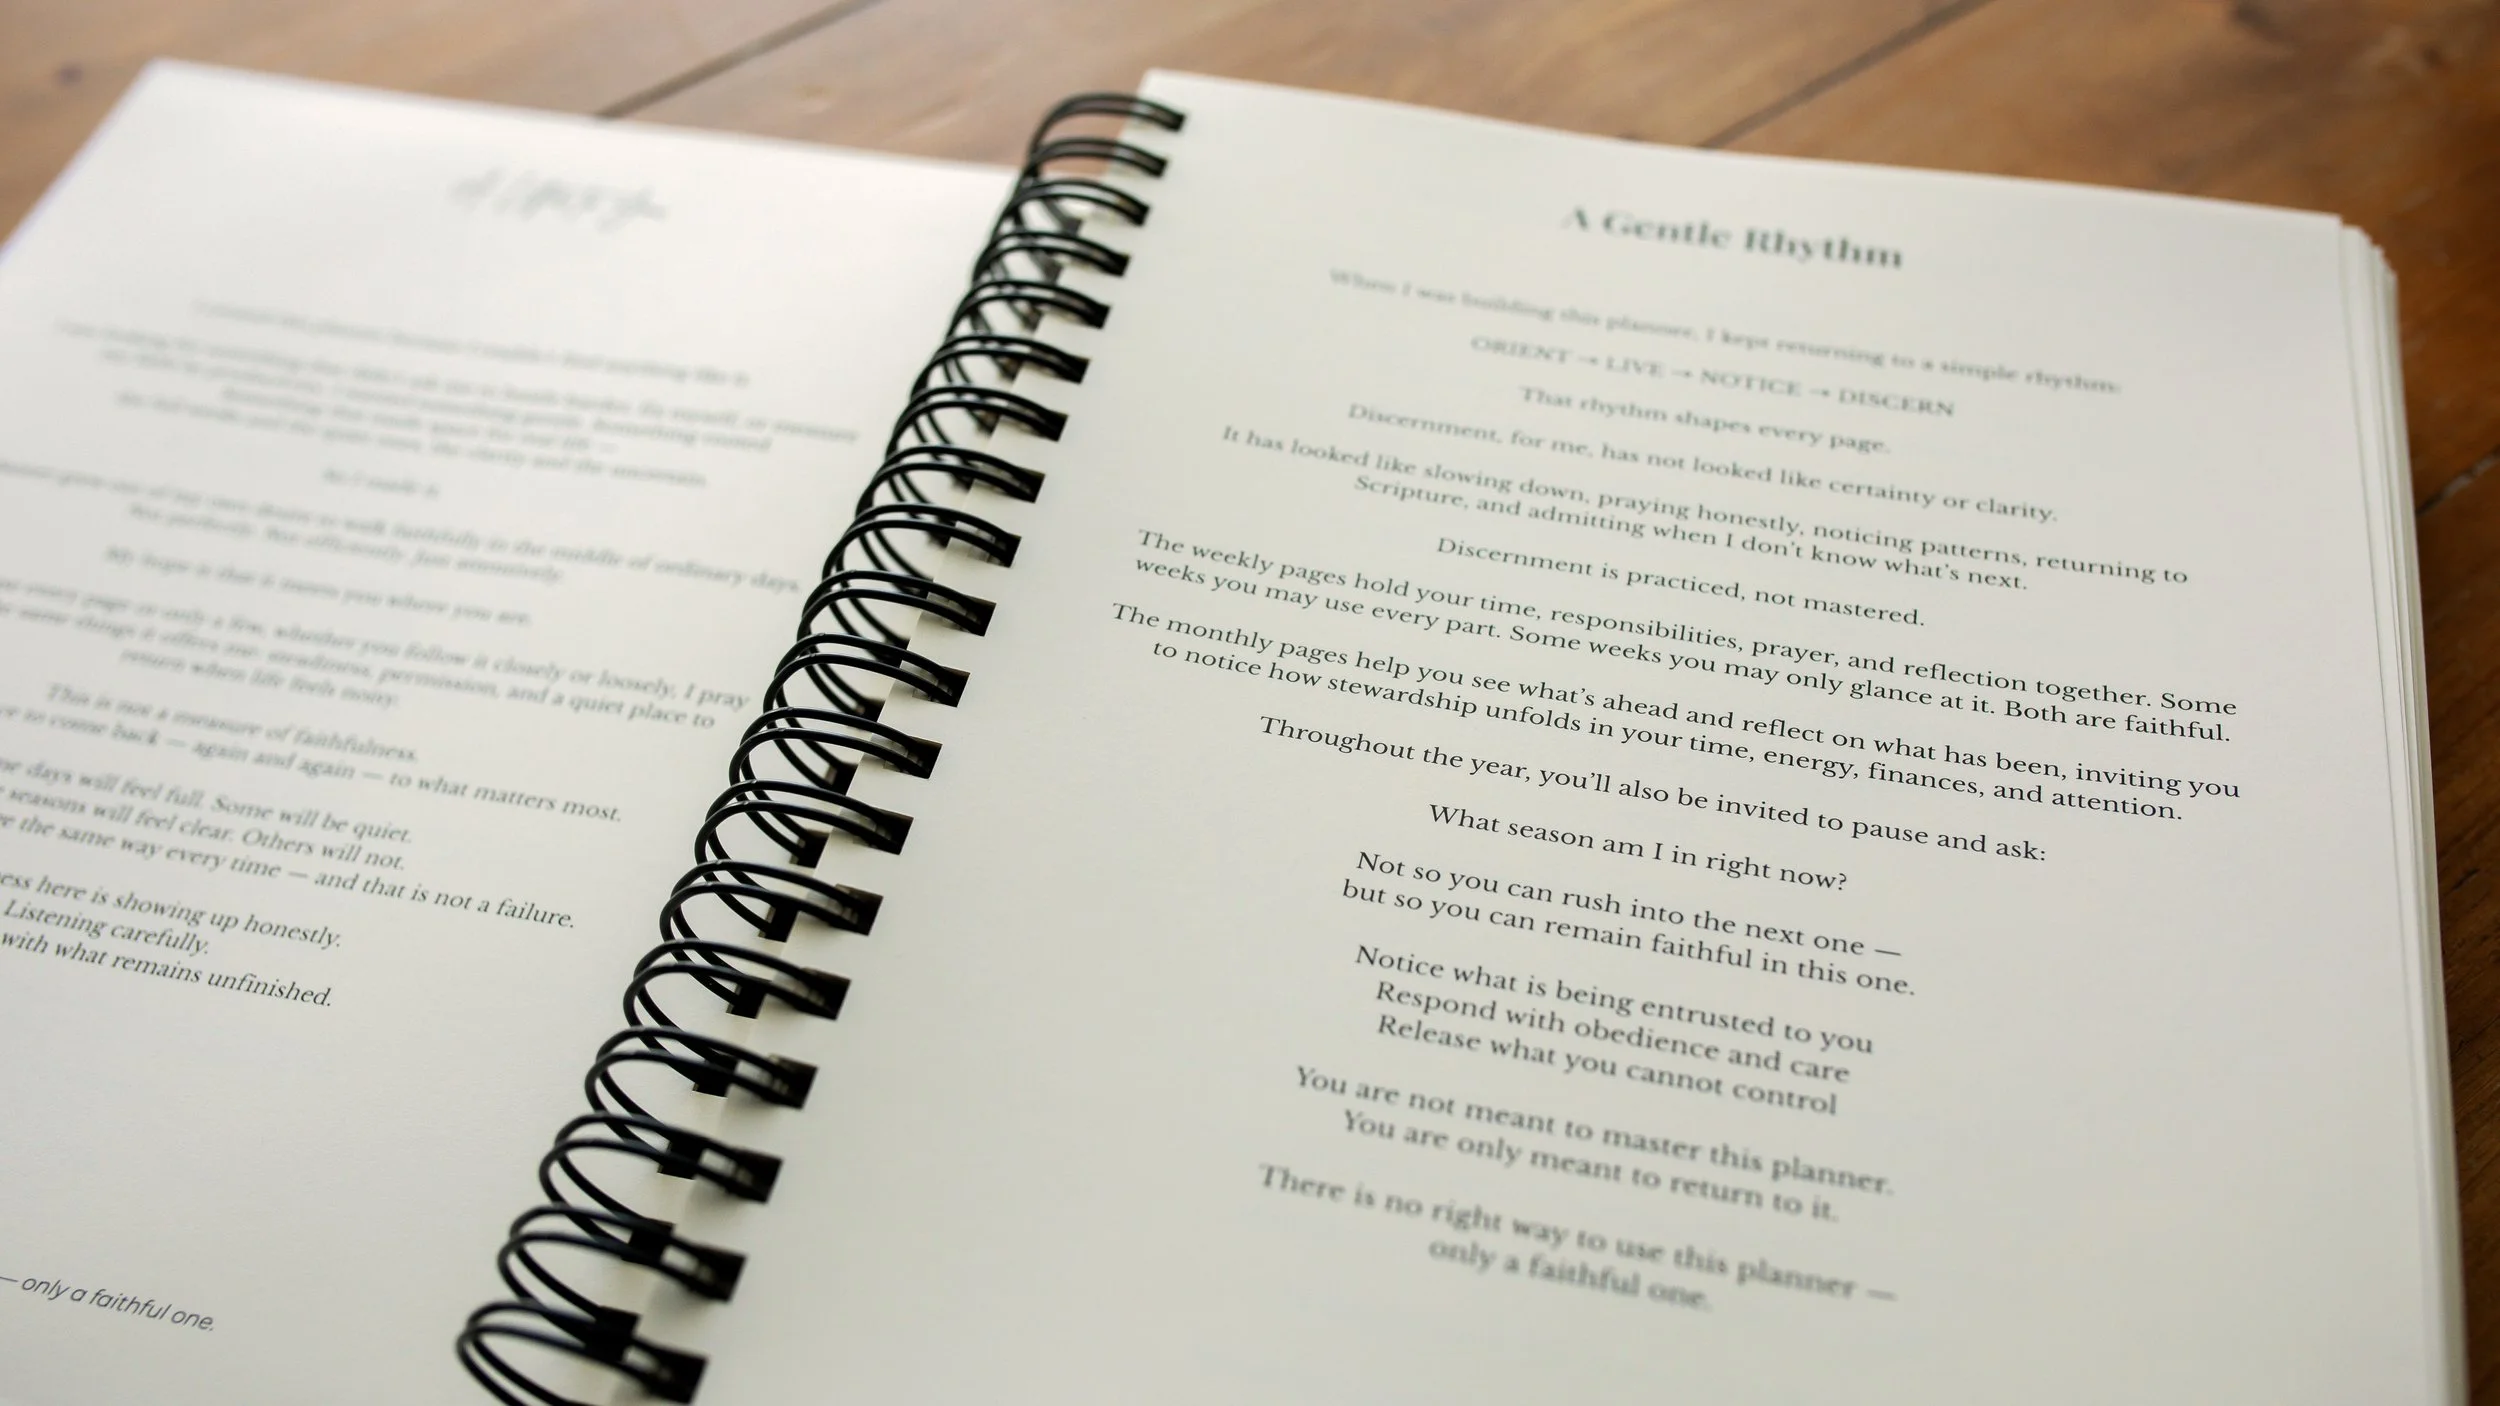 I created this planner because I couldn't find anything like it.
my hope is that it meets you where you are.
every page or only a few, whether you follow it closely or loosely, I pray
same things it offers me: steadiness, permission, and a quiet place to
return when life feels noisy.
This is not a measure of faithfulness.
to come back — again and again — to what matters most.
days will feel full. Some will be quiet.
seasons will feel clear. Others will not.
the same way every time — and that is not a failure.
here is showing up honestly.
Listening carefully.
with what remains unfinished.
— only a faithful one.
A Gentle Rhythm
When I was building this planner, I kept returning to a simple rhythm:
ORIENT → LIVE → NOTICE → DISCERN
That rhythm shapes every page.
Discernment, for me, has not looked like certainty or clarity.
It has looked like slowing down, praying honestly, noticing patterns, returning to
Scripture, and admitting when I don't know what's next.
Discernment is practiced, not mastered.
The weekly pages hold your time, responsibilities, prayer, and reflection together. Some
weeks you may use every part. Some weeks you may only glance at it. Both are faithful.
The monthly pages help you see what's ahead and reflect on what has been, inviting you
to notice how stewardship unfolds in your time, energy, finances, and attention.
Throughout the year, you'll also be invited to pause and ask:
What season am I in right now?
Not so you can rush into the next one —
but so you can remain faithful in this one.
Notice what is being entrusted to you
Respond with obedience and care
Release what you cannot control
You are not meant to master this planner.
You are only meant to return to it.
There is no right way to use this planner —
only a faithful one.